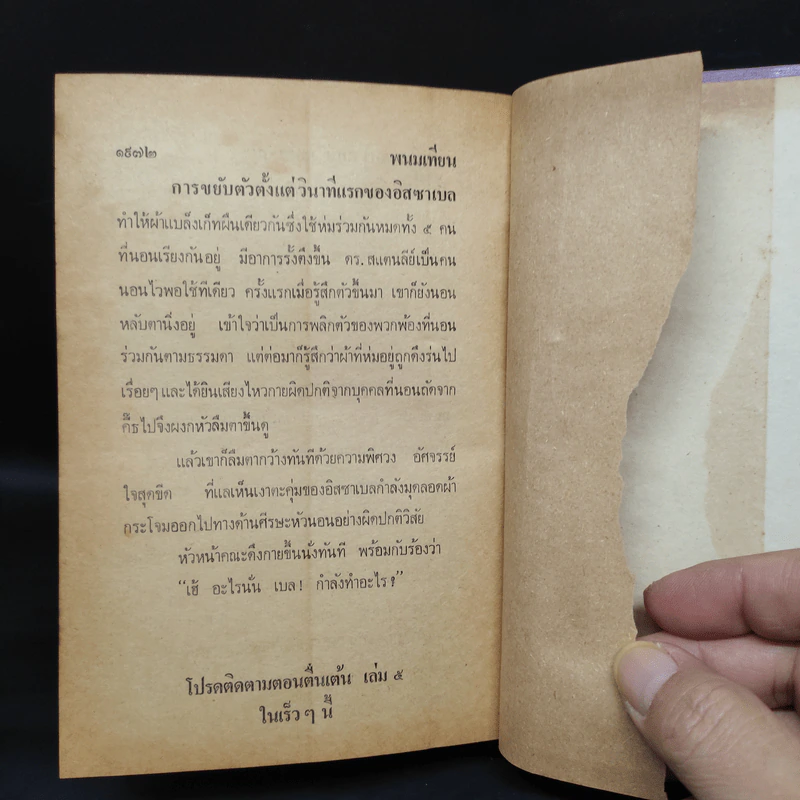 ๑๕๗๒
พนมเทียน
การขยับตัวตั้งแต่วินาทีแรกของอิสซาเบล
ทำให้ผ้าแบล็งเก็ทผืนเดียวกันซึ่งใช้ห่มร่วมกันหมดทั้ง ๕ คน
ที่นอนเรียงกันอยู่ มีอาการรั้งตึงขึ้น ดร.สแตนลีย์เป็นคน
นอนไวพอใช้ทีเดียว ครั้งแรกเมื่อรู้สึกตัวขึ้นมา เขาก็ยังนอน
หลับตานิ่งอยู่ เข้าใจว่าเป็นการพลิกตัวของพวกพ้องที่นอน
ร่วมกันตามธรรมดา แต่ต่อมาก็รู้สึกว่าผ้าที่ห่มอยู่ถูกดึงร่นไป
เรื่อยๆ และได้ยินเสียงไหวกายผิดปกติจากบุคคลที่นอนถัดจาก
คี๊ธไปจึงผงกหัวลืมตาขึ้นดู
แล้วเขาก็ลืมตากว้างทันทีด้วยความพิศวง อัศจรรย์
ใจสุดขีด ที่แลเห็นเงาตะคุ่มของอิสซาเบลกำลังมุดลอดผ้า
กระโจมออกไปทางด้านศีรษะหัวนอนอย่างผิดปกติวิสัย
หัวหน้าคณะดึงกายขึ้นนั่งทันที พร้อมกับร้องว่า
“เฮ้ อะไรนั่น เบล! กำลังทำอะไร?”
โปรดติดตามตอนตื่นเต้น เล่ม ๕
ในเร็ว ๆ นี้